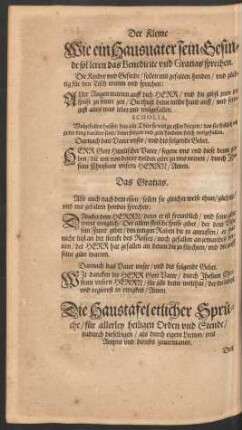 Der Kleine
Wie ein Hausuater sein Gesin-
de sol leren das Benedicite vnd Gratias sprechen.
Die Kinder vnd Gesinde / sollen mit gefalten henden / vnd züch-
tig für den Tisch tretten vnd sprechen:
Aller Augen warten auff dich HERR / vnd du gibst jnen jre
Speise zu seiner zeit / Du thust deine milde hand auff / vnd
alles was lebet mit wolgefallen.
SCHOLIA,
Wolgefallen heisset, das alle Thier so viel zu essen kriegen / das sie frölich vnd
guter ding darüber sind / denn sorgen vnd geitz hindern solch wolgefallen.
Darnach das Vater vnser / vnd dis folgende Gebet.
HERR Gott Himlischer Vater / segene vns vnd diese deine
die wir von deiner milden güte zu vns nemen / durch
Christum vnsern HERRN / Amen.
Das Gratias.
Also auch nach dem essen / sollen sie gleicher weise thun / züchtig
vnd mit gefalten henden sprechen:
Dancket dem HERRN / denn er ist freundlich / vnd seine güte
weret ewiglich / Der allem fleische speise gibet / der dem
sein Futer gibet / den jungen Raben die jn anruffen / er hat
nicht lust an der stercke des Rosses / noch gefallen an jemandes
der HERR hat gefallen an denen die jn fürchten / vnd die auff
seine güte warten.
Darnach das Vater vnser / vnd dis folgende Gebet.
Wir dancken dir HERR Gott Vater / durch Jhesum
vnsern HERRN / für alle deine wolthat / der du lebest
vnd regierest in ewigkeit / Amen.
Die Haustafel etlicher Sprü-
che / für allerley heiligen Orden vnd Stende /
dadurch dieselbigen / als durch eigene Lection / jres
Ampts vnd diensts zuuermanen.